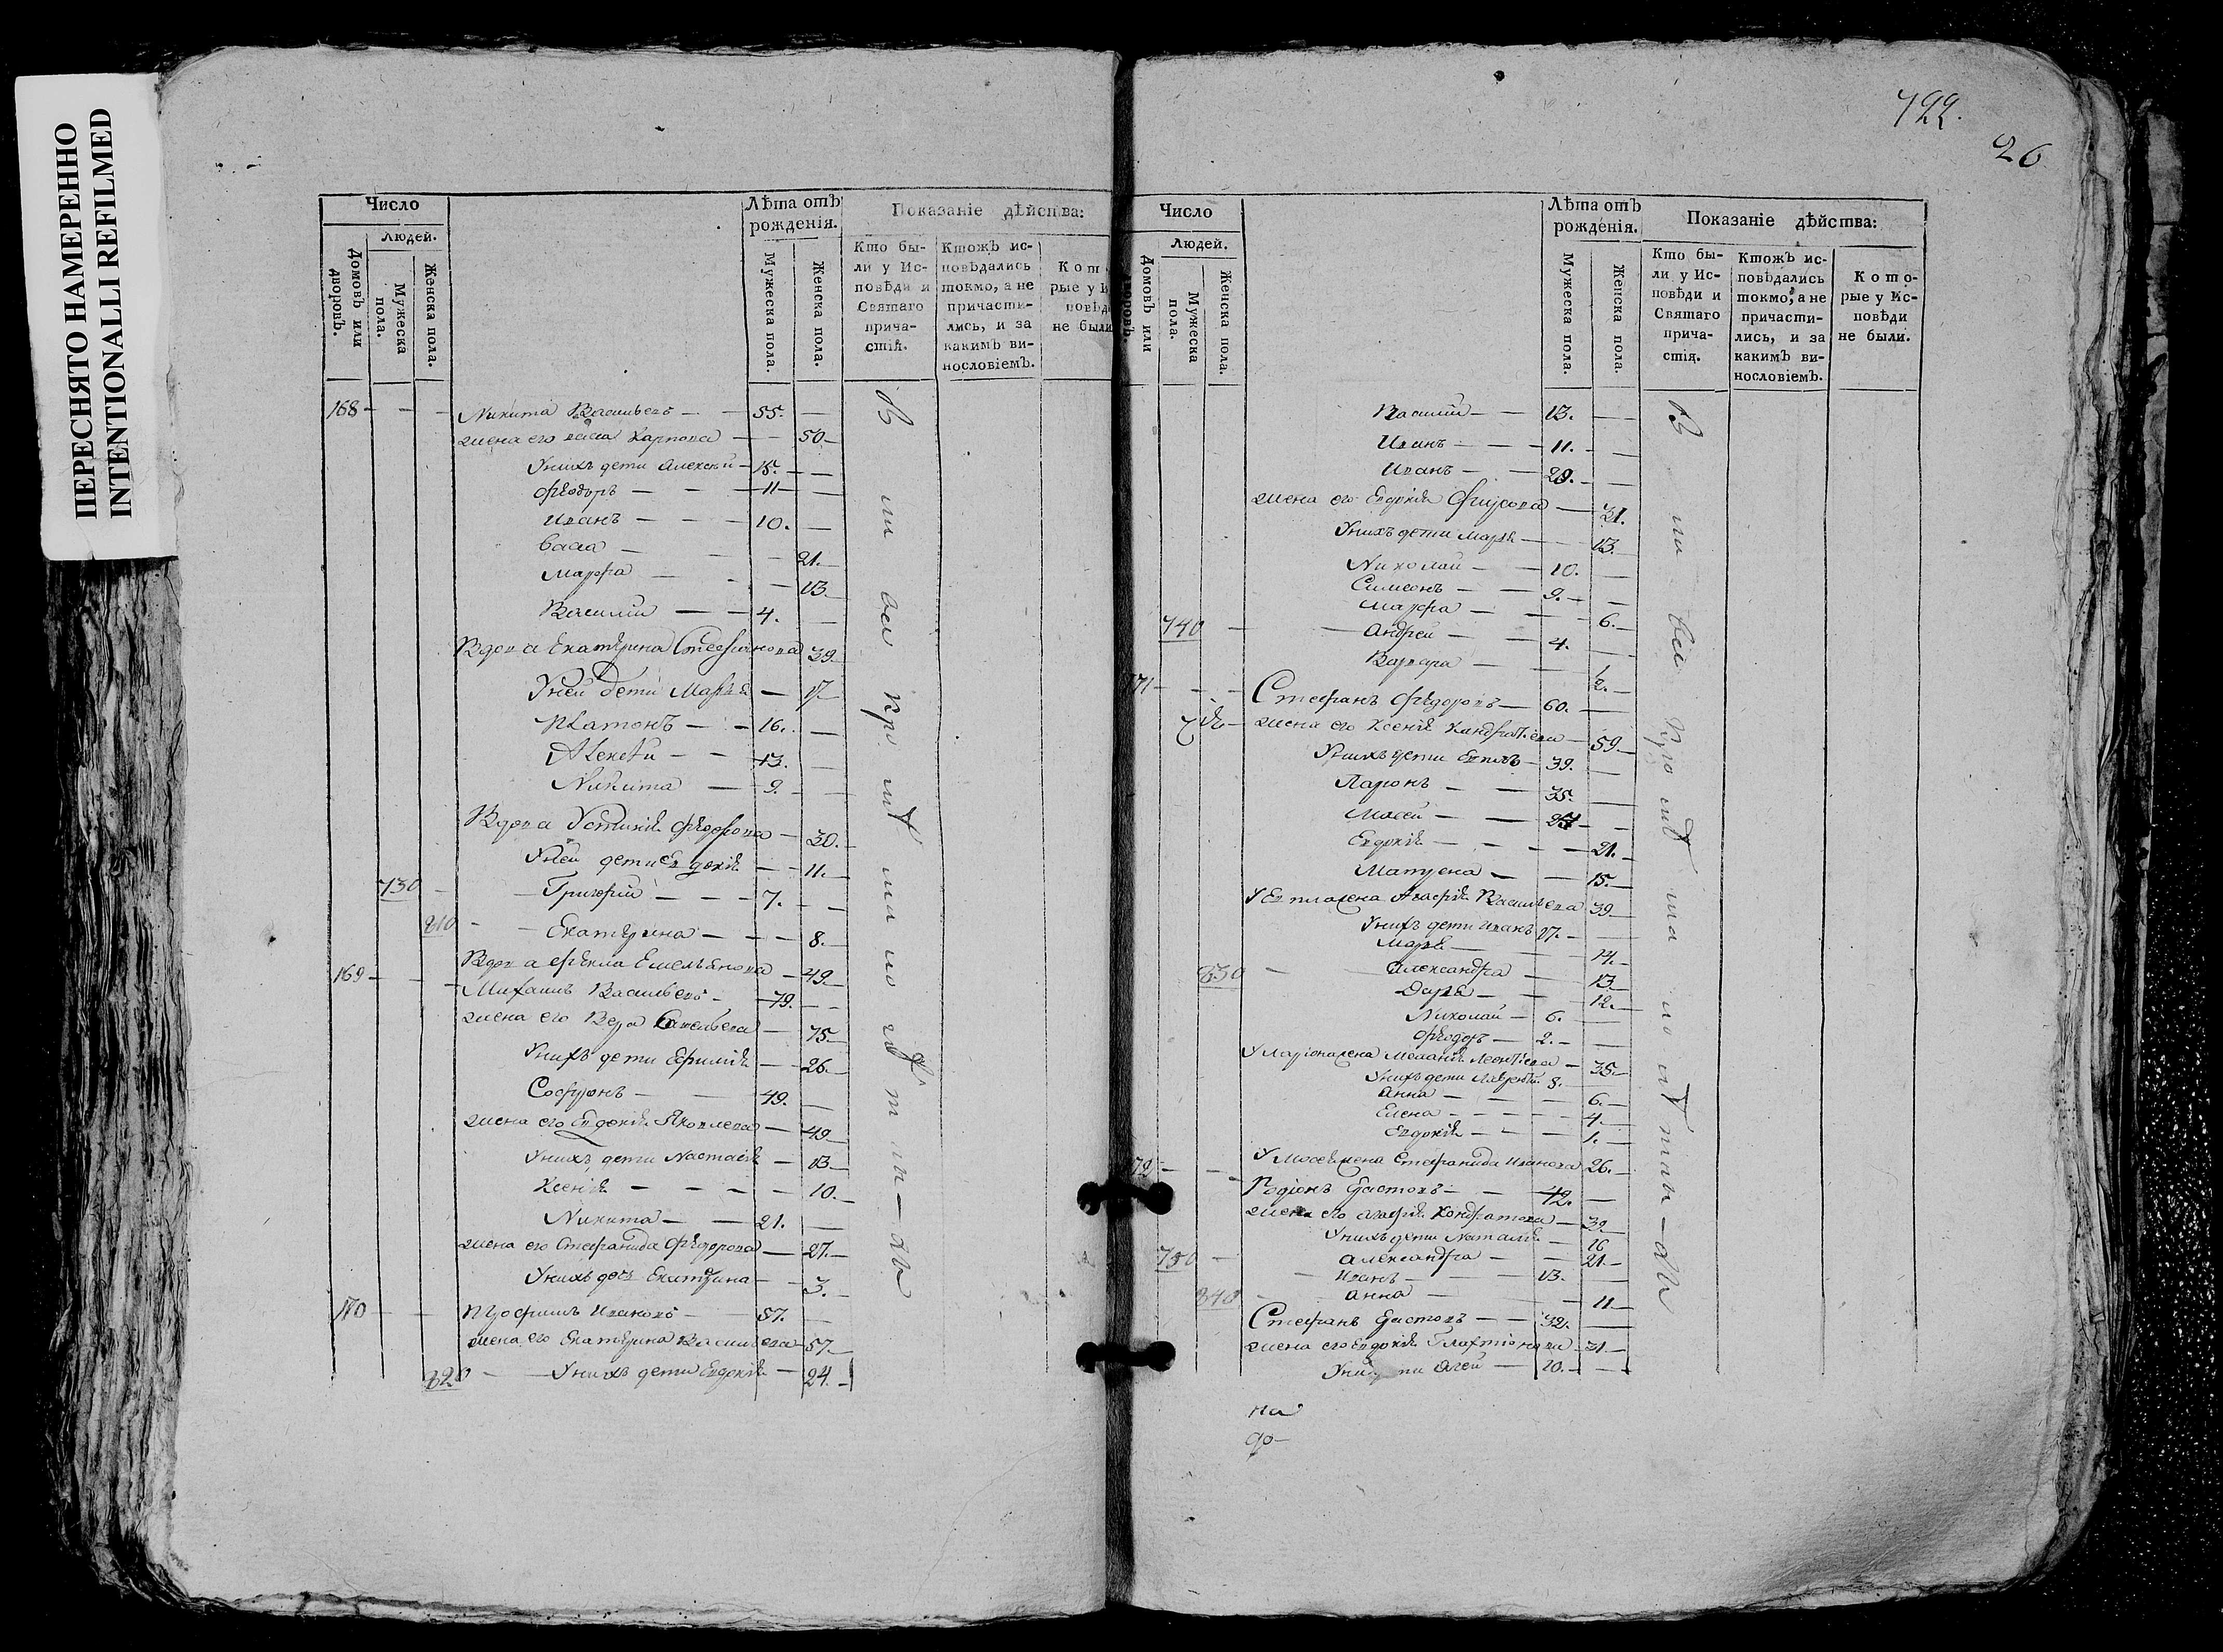 ПЕРЕСНЯТО НАМЕРЕННО
INTENTIONALLI REFILMED
Число
Людей.
Домовъ или дворовъ.
Мужеска пола.
Женска пола.
Лѣта отъ рожденія.
Мужеска пола.
Женска пола.
Показаніе дѣйства:
Кто были у Исповѣди и Святаго причастія.
Ктожъ исповѣдались токмо, а не причастились, и за какимъ винословіемъ.
168 Никита Васильевъ 55.
жена его Васа Карпова 50
У нихъ дети Алексѣй 15.
Фѣодоръ 11
Иванъ 10.
Васа 21.
Марфа 13.
Василій 4.
Вдова Екатѣрина Стефанова 39.
У ней дети Марѣя 17
Платонъ 16.
Алексѣй 13.
Никита 9.
Вдова Устинія Фѣодорова 30.
У ней дети Евдокія 11.
730 Григорій 7.
810 Екатѣрина 8.
Вдова Фѣкла Емельянова 49.
169 Михаилъ Васильевъ 79.
жена его Вера Савельева 75
У нихъ дети Ефимія 26.
Софронъ 49.
жена его Евдокія Яковлева 49
У нихъ дети Настасія 13
Ксенія 10.
Никита 21.
жена его Стефанида Фѣодорова 27.
У нихъ дочь Екатѣрина 3.
170 Трофимъ Ивановъ 57.
жена его Екатѣрина Васильева 57.
820 У нихъ дети Евдокія 24.
722.
26
Число
Людей.
Домовъ или дворовъ.
Мужеска пола.
Женска пола.
Лѣта отъ рожденія.
Мужеска пола.
Женска пола.
Показаніе дѣйства:
Кто были у Исповѣди и Святаго причастія.
Ктожъ исповѣдались токмо, а не причастились, и за какимъ винословіемъ.
Которые у Исповѣди не были.
Василій 13.
Иванъ 11.
Иванъ 29.
жена его Евдокія 31.
У нихъ дети Марѣя 13.
Николай 10.
Симеонъ 9.
Марфа 6.
740 Андрей 4.
Варвара 2.
171 Стефанъ Фѣодоровъ 60.
жена его Ксенія Кандратіева 59
У нихъ дети Евплъ 39.
Ларіонъ 35.
Мосей
Евдокія 21.
Матрена 15.
У Евпла жена Агафія Васильева 39
У нихъ дети Иванъ 17.
Марѣя 14.
830 Александра 13
Дарѣя 12.
Николай 6.
Фѣодоръ 2.
У Ларіона жена Меланія Леонтіева 35
У нихъ дети Лаврентій 8.
Анна 6.
Елена 4.
Евдокія 1.
У Мосея жена Стефанида Иванова 26.
172 Родіонъ 42.
жена его Агафія Кондратова 39
У нихъ дети Наталія 16
Александра 21
750 Иванъ 13.
840 Анна 11
Стефанъ 32.
жена его Евдокія 31
10.